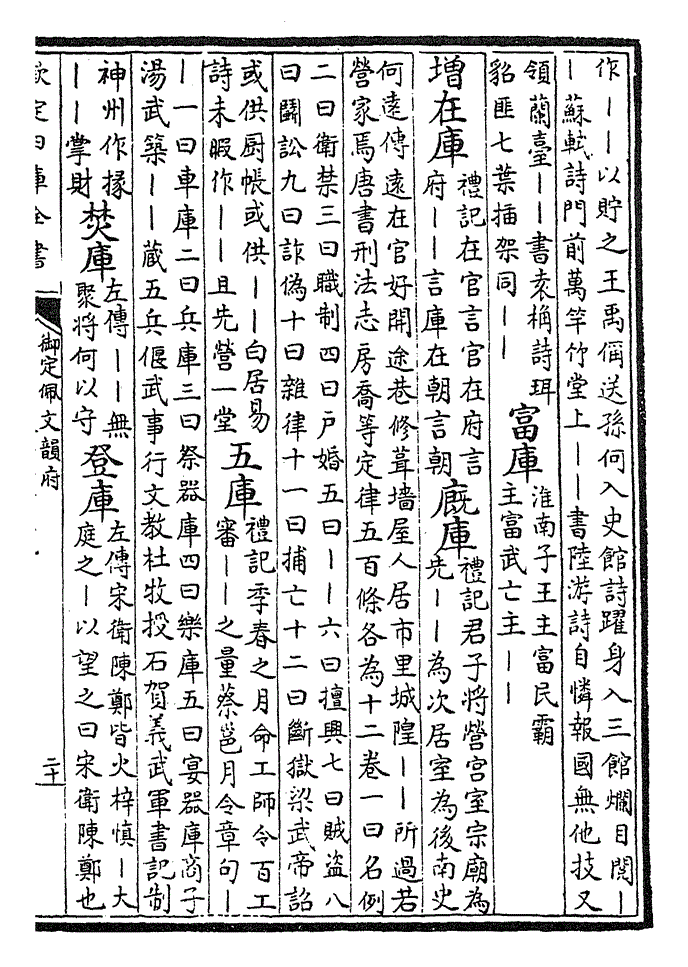 作丨丨以貯之王禹偁送孫何入史館詩躍身入三館爛目閱丨
丨蘇軾詩門前萬竿竹堂上丨丨書陸游詩自憐報國無他技又
領蘭臺丨丨書袁桷詩珥
貂匪七葉插架同丨丨
富庫
淮南子王主富民霸
主富武亡主丨丨
增在庫
禮記在官言官在府言
府丨丨言庫在朝言朝
廐庫
禮記君子將營宮室宗廟為
先丨丨為次居室為後南史
何遠傳遠在官好開途巷修葺墻屋人居市里城隍丨丨所過若
營家焉唐書刑法志房喬等定律五百條各為十二卷一曰名例
二曰衛禁三曰職制四曰戶婚五曰丨丨六曰擅興七曰賊盜八
曰鬭訟九曰詐偽十曰雜律十一曰捕亡十二曰斷獄梁武帝詔
或供厨帳或供丨丨白居易
詩未暇作丨丨且先營一堂
五庫
禮記季春之月命工師令百工
審丨丨之量蔡邕月令章句丨
丨一曰車庫二曰兵庫三曰祭器庫四曰樂庫五曰宴器庫商子
湯武築丨丨藏五兵偃武事行文教杜牧授石賀義武軍書記制
神州作掾
丨丨掌財
焚庫
左傳丨丨無
聚將何以守
登庫
左傳宋衛陳鄭皆火梓慎丨大
庭之丨以望之曰宋衛陳鄭也
欽定四庫全書
御定佩文韻府
二十